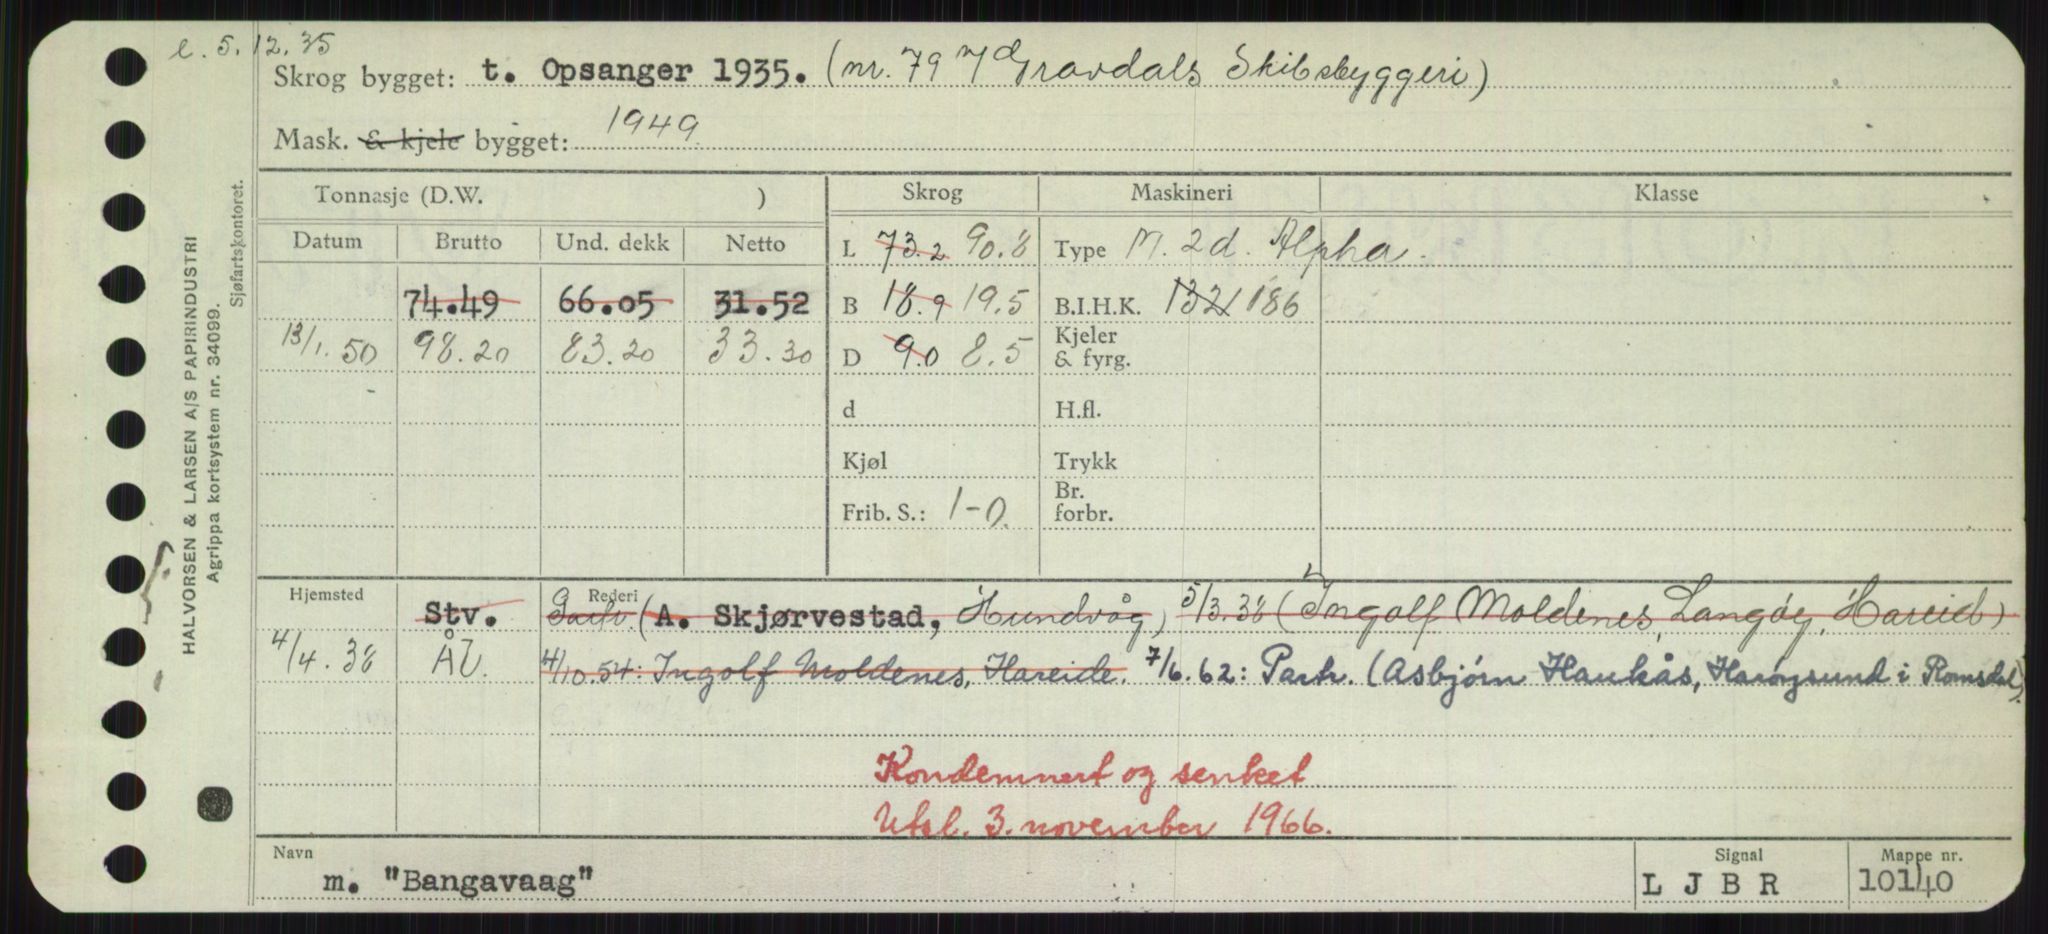 e. 5.12.35
Skrog bygget: t. Opsanger 1935. (nr. 79 Gravdals Skibsbyggeri)
Mask. & kjele bygget: 1949
Tonnasje (D.W. ) Skrog Maskineri Klasse
Datum Brutto Und. dekk Netto L 73.2 90.8 Type M. 2d. Alpha.
74.49 66.05 31.52 B 18.9 19.5 B.I.H.K. 132 186
13/1.50 98.20 83.20 33.30 D 9.0 8.5 Kjeler & fyrg.
d H.fl.
Kjøl Trykk
Frib. S.: 1-0. Br. forbr.
Hjemsted Rederi
Stv. (A. Skjørvestad, Hundvåg) 5/3.38 (Ingolf Moldenes, Langøy, Hareid)
4/4.38 ÅL. 4/10.54: Ingolf Moldenes, Hareide. 7/6.62: Partr. (Asbjørn Haukås, Harøysund i Romsdal).
Kondemnert og senket
Utsl. 3. november 1966.
Navn Signal Mappe nr.
m. "Bangavaag" L J B R 10140
HALVORSEN & LARSEN A/S PAPIRINDUSTRI
Agrippa kortsystem nr. 34099.
Sjøfartskontoret.